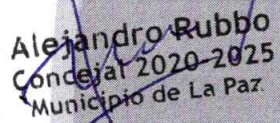 Alejandro Rubbo
Concejal 2020-2025
Municipio de La Paz.